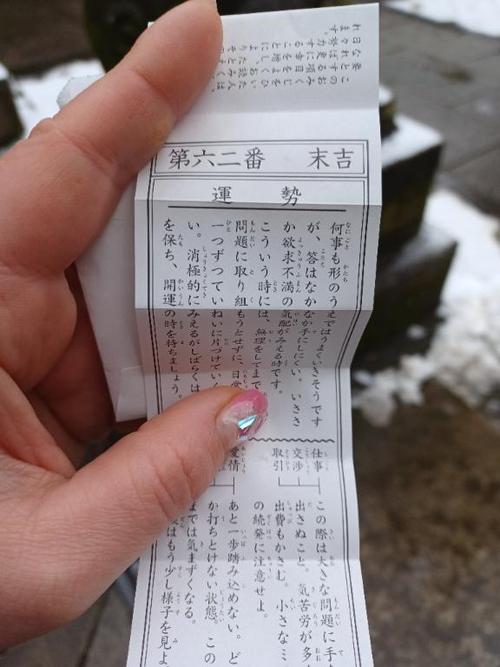 第六二番 末吉
運勢
何事も形のうえではうまくいきそうです
が、答はなかなか手にしにくい。いささ
か欲求不満の気配がみえる時です。
こういう時には、無理をしてまで
問題に取り組もうとせずに、日常
一つずつていねいに片づけていく
い。消極的にみえるがしばらくは
を保ち、開運の時を待ちましょう。
仕事
交渉
取引
この際は大きな問題に手
出さぬこと。気苦労が多
出費もかさむ。小さなミ
の続発に注意せよ。
愛情
あと一歩踏み込めない。ど
か打ちとけない状態。この
までは気まずくなる。
はもう少し様子を見よ